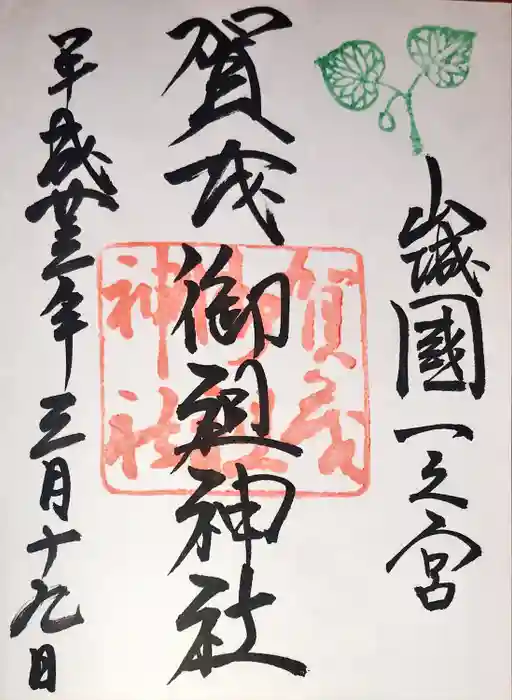 山城國一之宮
賀茂御祖神社
賀茂
御祖
神社
平成廿三年三月十九日